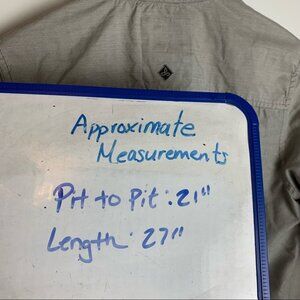 Approximate
Measurements
Pit to Pit: 21"
Length: 27"